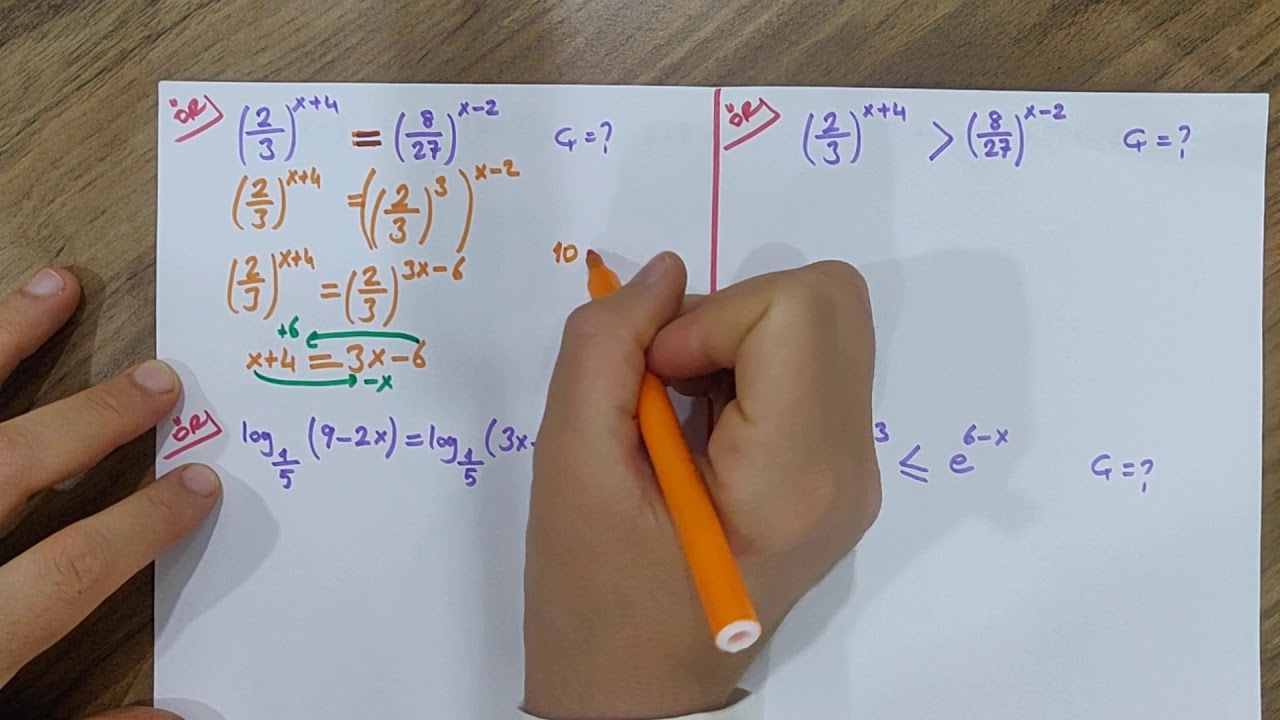 ÖR) (2/3)^(x+4) = (8/27)^(x-2) Ç=?
(2/3)^(x+4) = ((2/3)^3)^(x-2)
(2/3)^(x+4) = (2/3)^(3x-6)
10
+6
x+4=3x-6
-x
ÖR) log_(1/5) (9-2x)=log_(1/5) (3x
ÖR) (2/3)^(x+4) > (8/27)^(x-2) Ç=?
3 ≤ e^(6-x) Ç=?